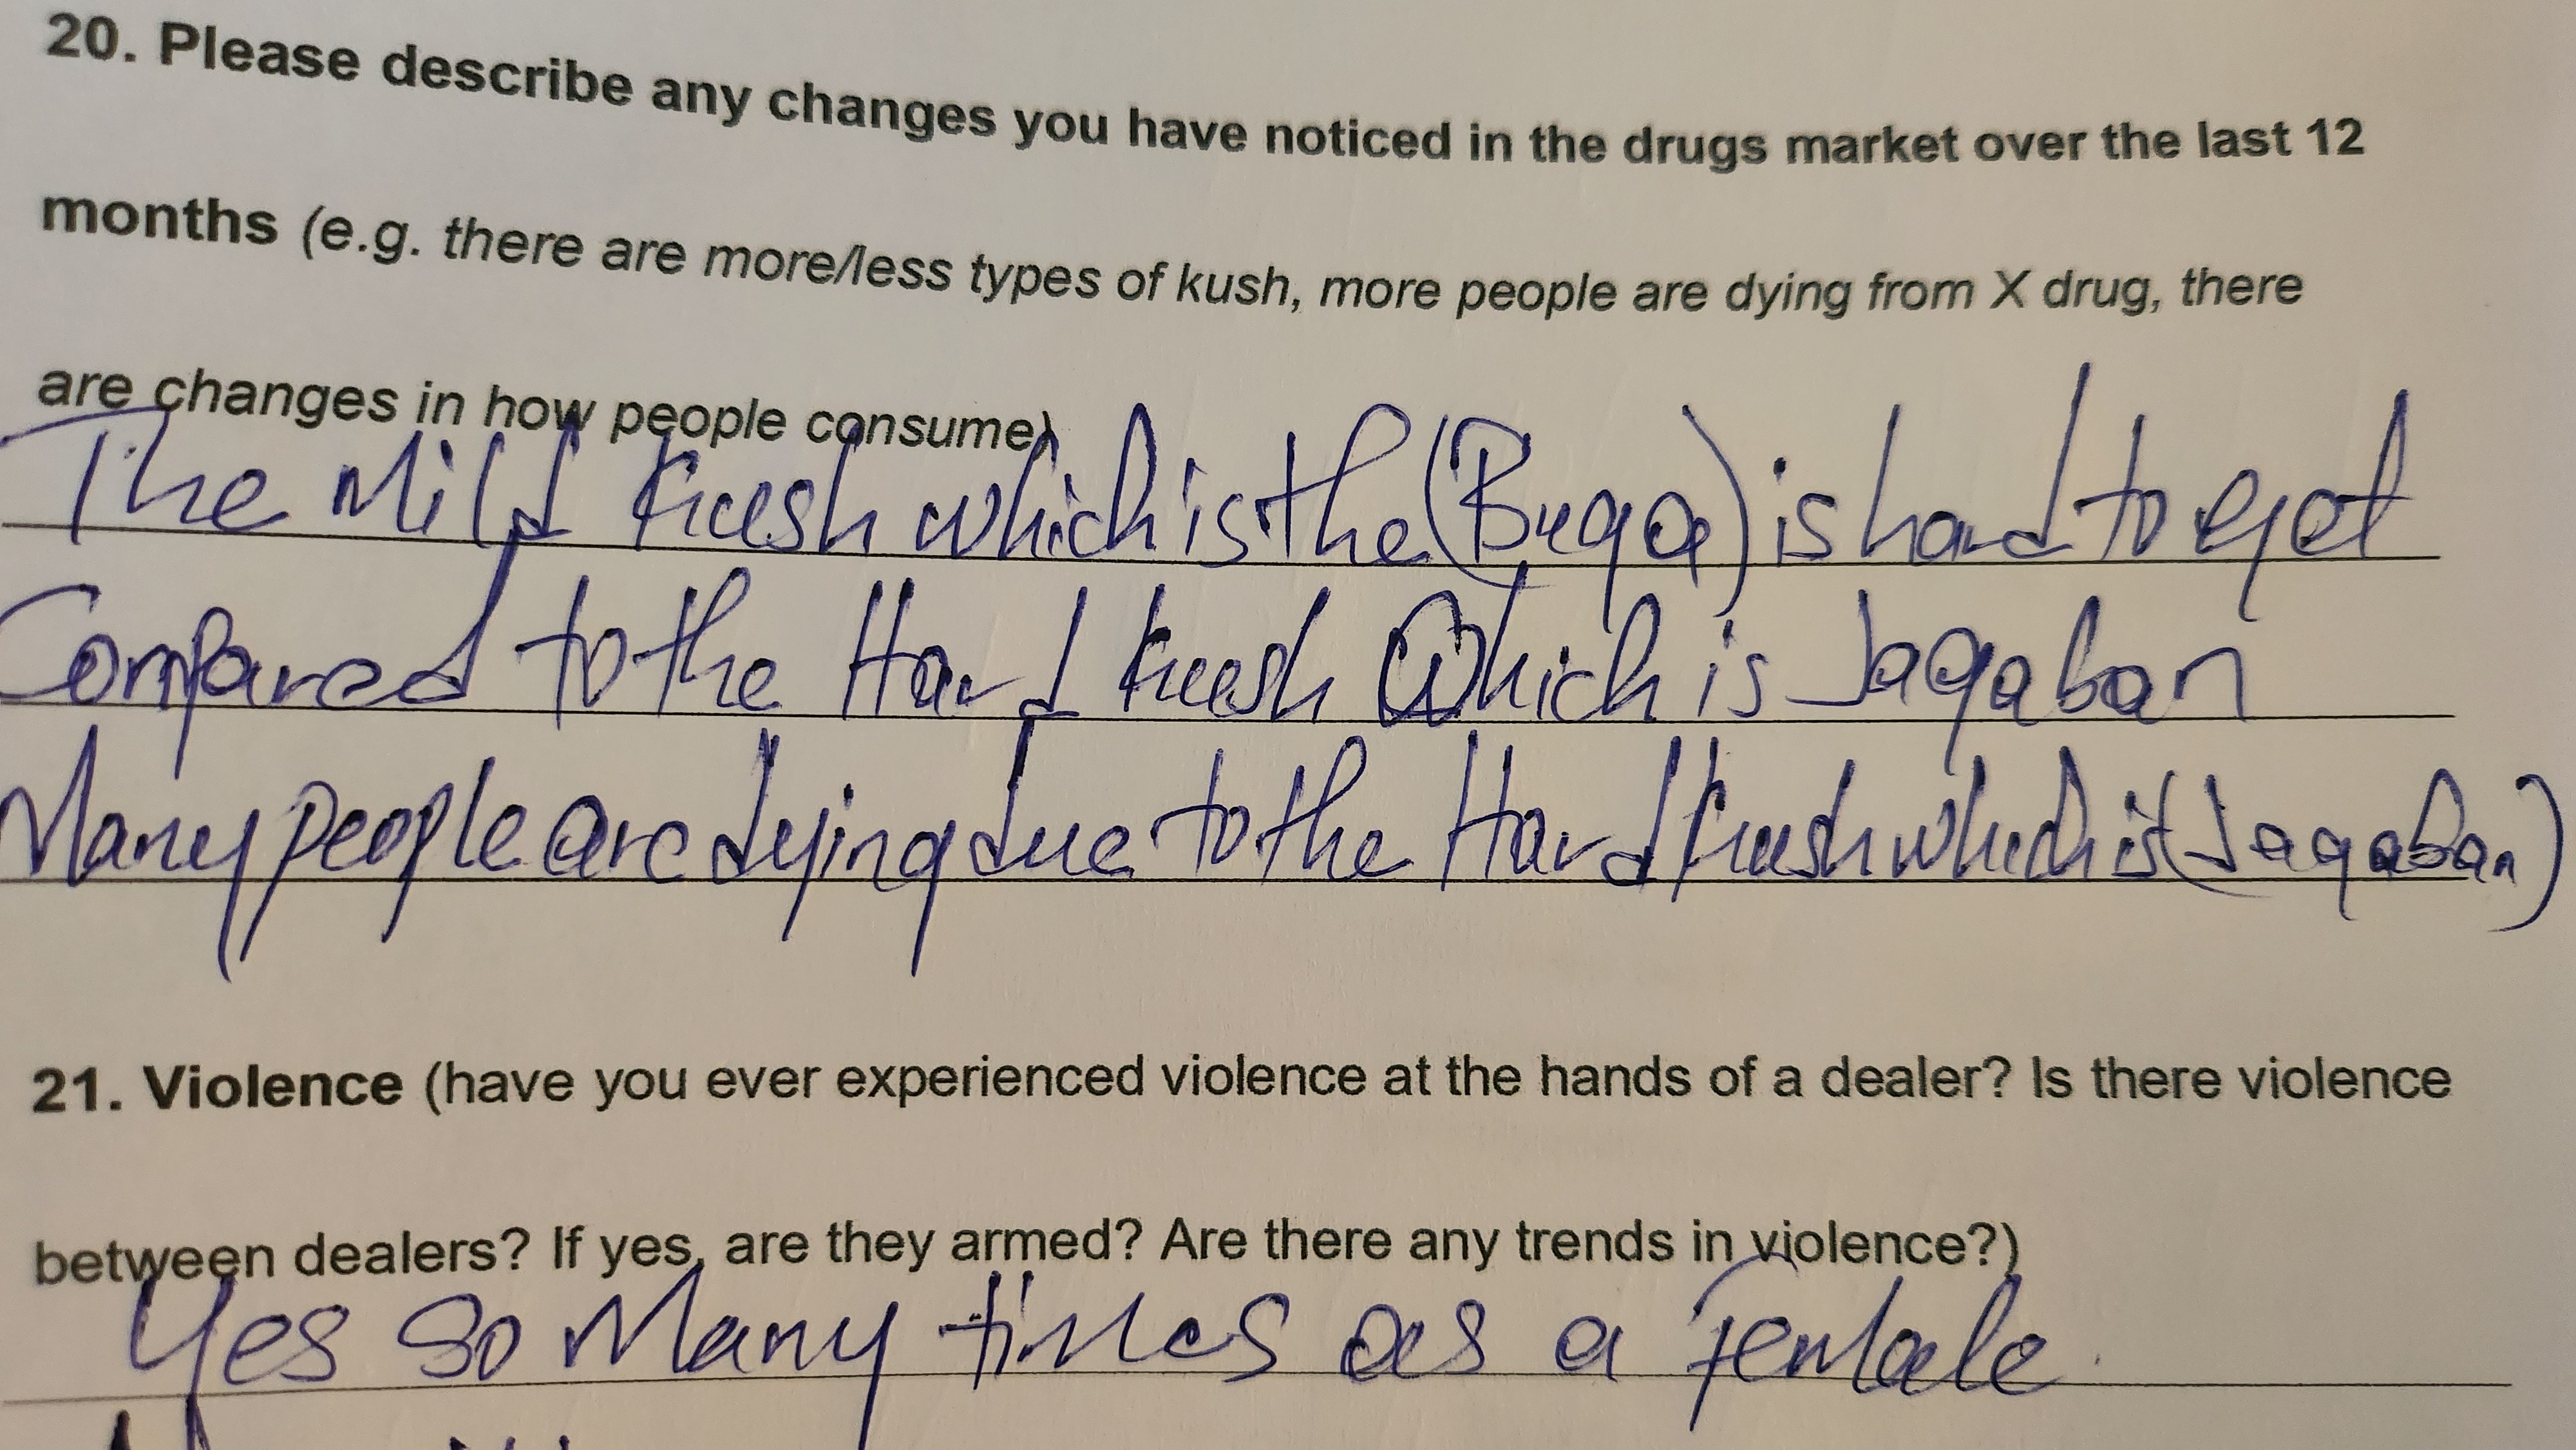 20. Please describe any changes you have noticed in the drugs market over the last 12
months (e.g. there are more/less types of kush, more people are dying from X drug, there
are changes in how people consume)
The Mild kush which is the (Buga) is hard to get
Compared to the Hard kush Which is Jagaban
Many people are dying due to the Hard kush which is (Jagaban)
21. Violence (have you ever experienced violence at the hands of a dealer? Is there violence
between dealers? If yes, are they armed? Are there any trends in violence?)
Yes so Many times as a female.